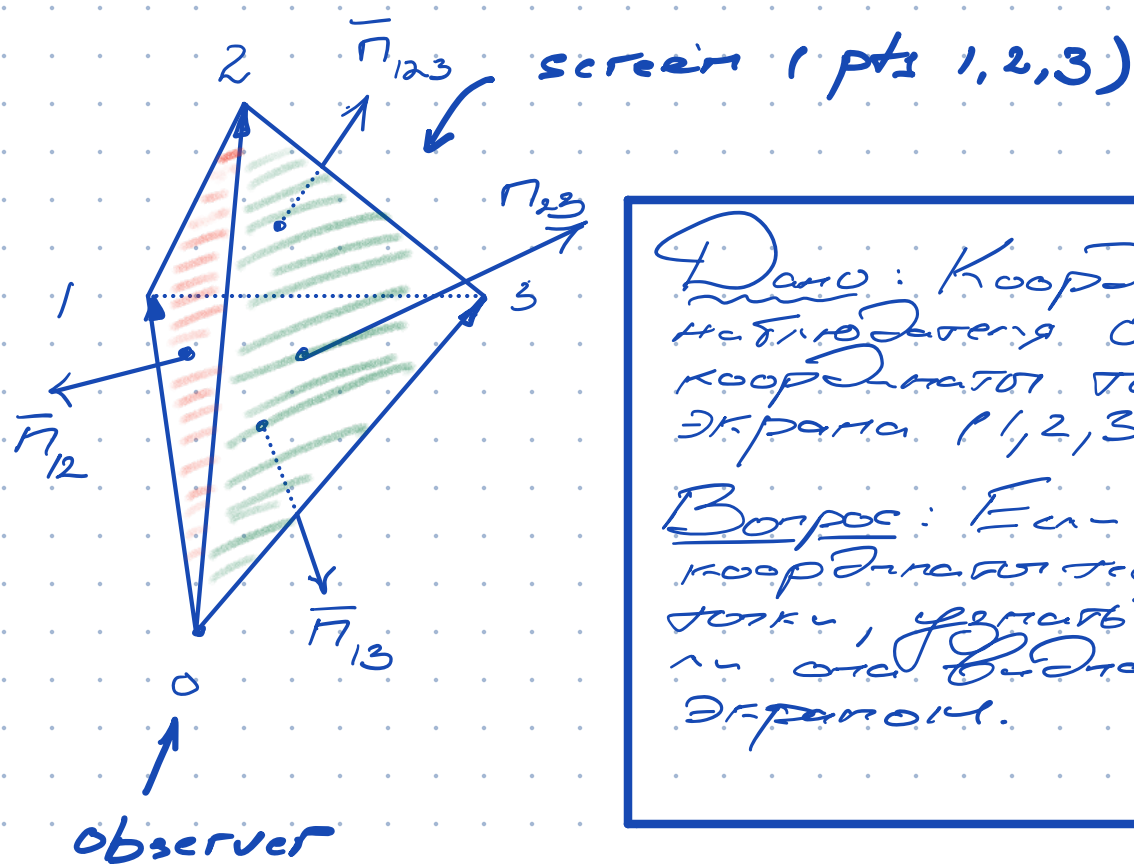 2
n̄₁₂₃
screen (pts 1,2,3)
n₂₃
1
3
n̄₁₂
n̄₁₃
0
observer
Дано: Коор
наблюдателя
координаты
Экрана (1,2,3
Вопрос:
координаты
точки, узнать
ли она видна
Экраном.